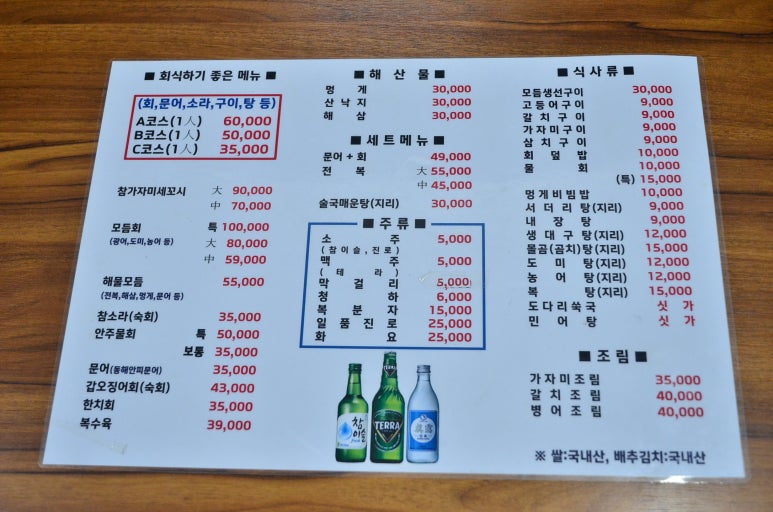 ■ 회식하기 좋은 메뉴 ■
(회,문어,소라,구이,탕 등)
A코스(1人) 60,000
B코스(1人) 50,000
C코스(1人) 35,000
참가자미세꼬시 大 90,000
中 70,000
모듬회 특 100,000
(광어,도미,농어 등) 大 80,000
中 59,000
해물모듬 55,000
(전복,해삼,멍게,문어 등)
참소라(숙회) 35,000
안주물회 특 50,000
보통 35,000
문어(동해안피문어) 35,000
갑오징어회(숙회) 43,000
한치회 35,000
복수육 39,000
■ 해 산 물 ■
멍 게 30,000
산 낙 지 30,000
해 삼 30,000
■ 세트메뉴 ■
문어 + 회 49,000
전 복 大 55,000
中 45,000
술국매운탕(지리) 30,000
■ 주 류 ■
소 주 5,000
(참이슬,진로)
맥 주 5,000
(테 라)
막 걸 리 5,000
청 하 6,000
복 분 자 15,000
일 품 진 로 25,000
화 요 25,000
참이슬
fresh
TERRA
TERRA
眞露
■ 식 사 류 ■
모듬생선구이 30,000
고등어구이 9,000
갈 치 구 이 9,000
가자미구이 9,000
삼 치 구 이 9,000
회 덮 밥 10,000
물 회 10,000
(특) 15,000
멍게비빔밥 10,000
서 더 리 탕(지리) 9,000
내 장 탕 9,000
생 대 구 탕(지리) 12,000
물곰(곰치)탕(지리) 15,000
도 미 탕(지리) 12,000
농 어 탕(지리) 12,000
복 탕(지리) 15,000
도다리쑥국 싯 가
민 어 탕 싯 가
■ 조 림 ■
가자미조림 35,000
갈 치 조 림 40,000
병 어 조 림 40,000
※ 쌀:국내산, 배추김치:국내산